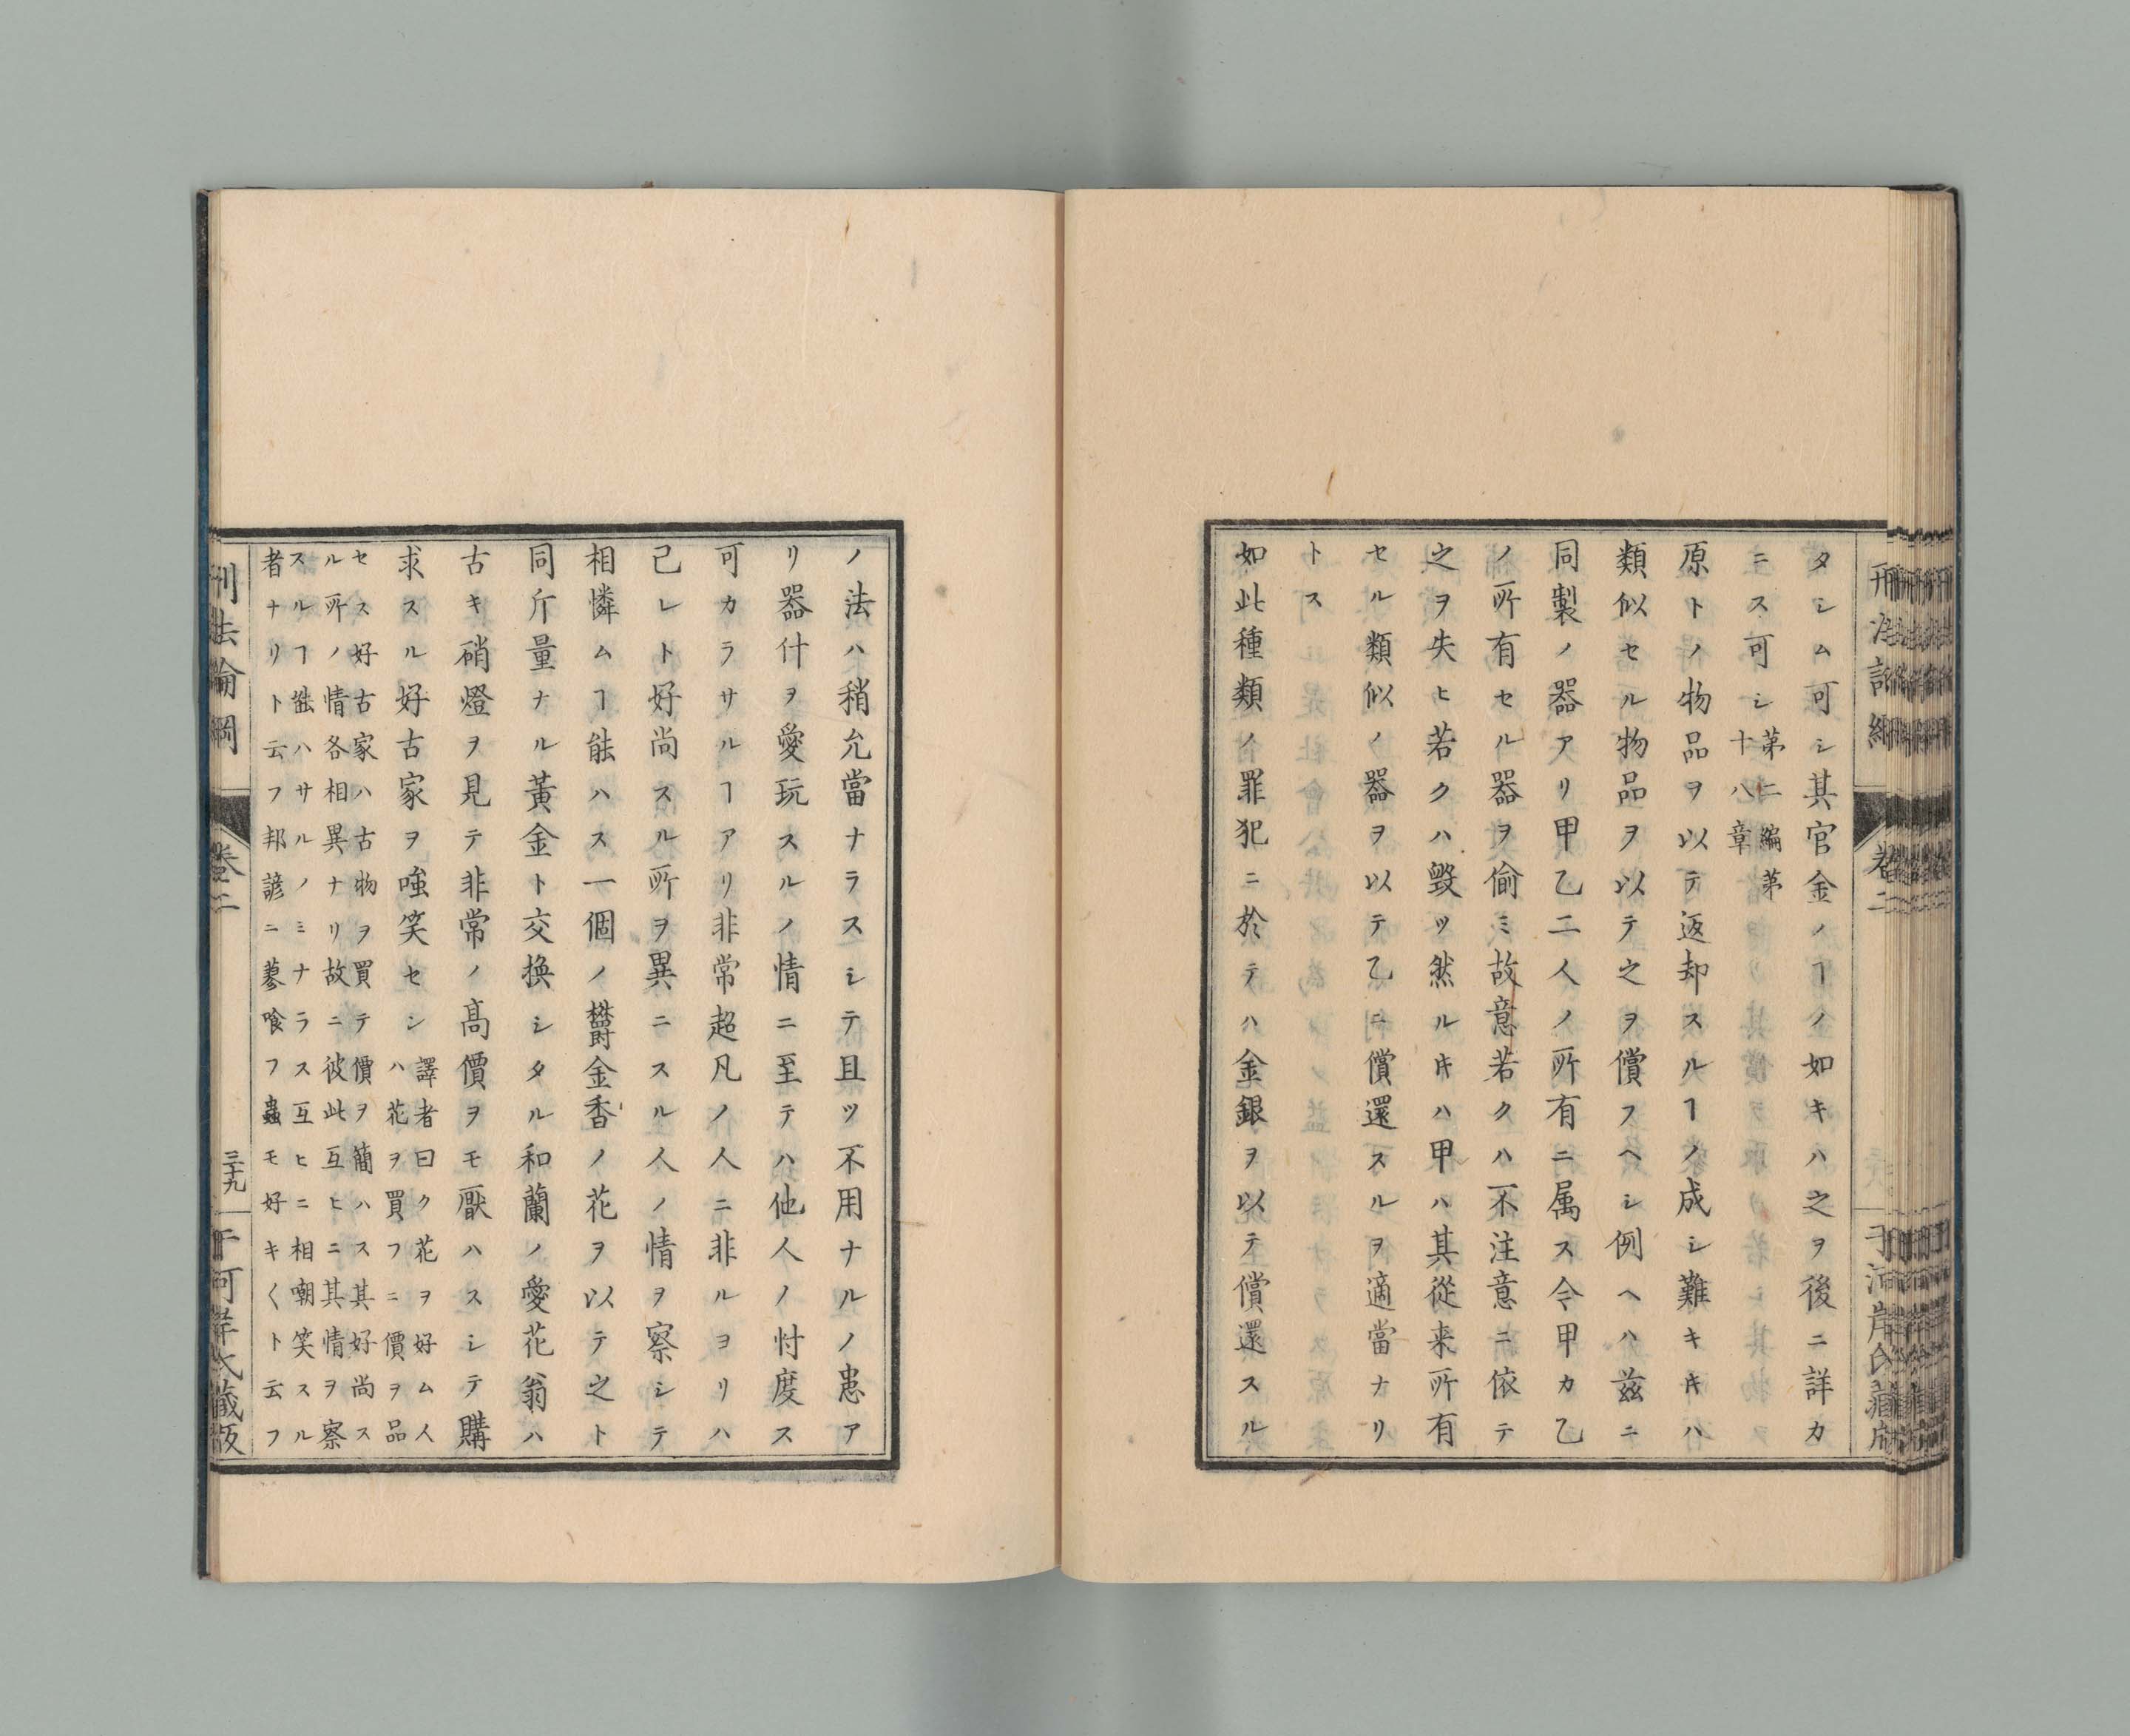 タシム可シ其官金ノヿノ如キハ之ヲ後ニ詳カ
ニス可シ第二編第
十八章
原トノ物品ヲ以テ返却スルヿノ成シ難キ𪜈キハ
類似セル物品ヲ以テ之ヲ償フヘシ例ヘハ茲ニ
同製ノ器アリ甲乙二人ノ所有ニ属ス今甲カ乙
ノ所有セル器ヲ偷ミ故意若クハ不注意ニ依テ
之ヲ失ヒ若クハ毀ツ然ルキハ甲ハ其從来所有
セル類似ノ器ヲ以テ乙ニ償還スルヲ適當ナリ
トス
如此種類ノ罪犯ニ於テハ金銀ヲ以テ償還スル
刑法論綱
卷二
于河岸氏藏版
ノ法ハ稍允當ナラスシテ且ツ不用ナルノ患ア
リ器什ヲ愛玩スルノ情ニ至テハ他人ノ忖度ス
可カラサルヿアリ非常超凡ノ人ニ非ルヨリハ
己レト好尚スル所ヲ異ニスル人ノ情ヲ察シテ
相憐ムヿ能ハス一個ノ欝金香ノ花ヲ以テ之ト
同斤量ナル黃金ト交換シタル和蘭ノ愛花翁ハ
古キ硝燈ヲ見テ非常ノ高價ヲモ厭ハスシテ購
求スル好古家ヲ嗤笑セシ譯者曰ク花ヲ好ム人
ハ花ヲ買フニ價ヲ品
セス好古家ハ古物ヲ買テ價ヲ簡ハス其好尚ス
ル所ノ情各相異ナリ故ニ彼此互ヒニ其情ヲ察
スルヿ能ハサルノミナラス互ヒニ相嘲笑スル
者ナリト云フ邦諺ニ蓼喰フ蟲モ好キ〱ト云フ
刑法論綱
卷二
三十九
于河岸氏藏版